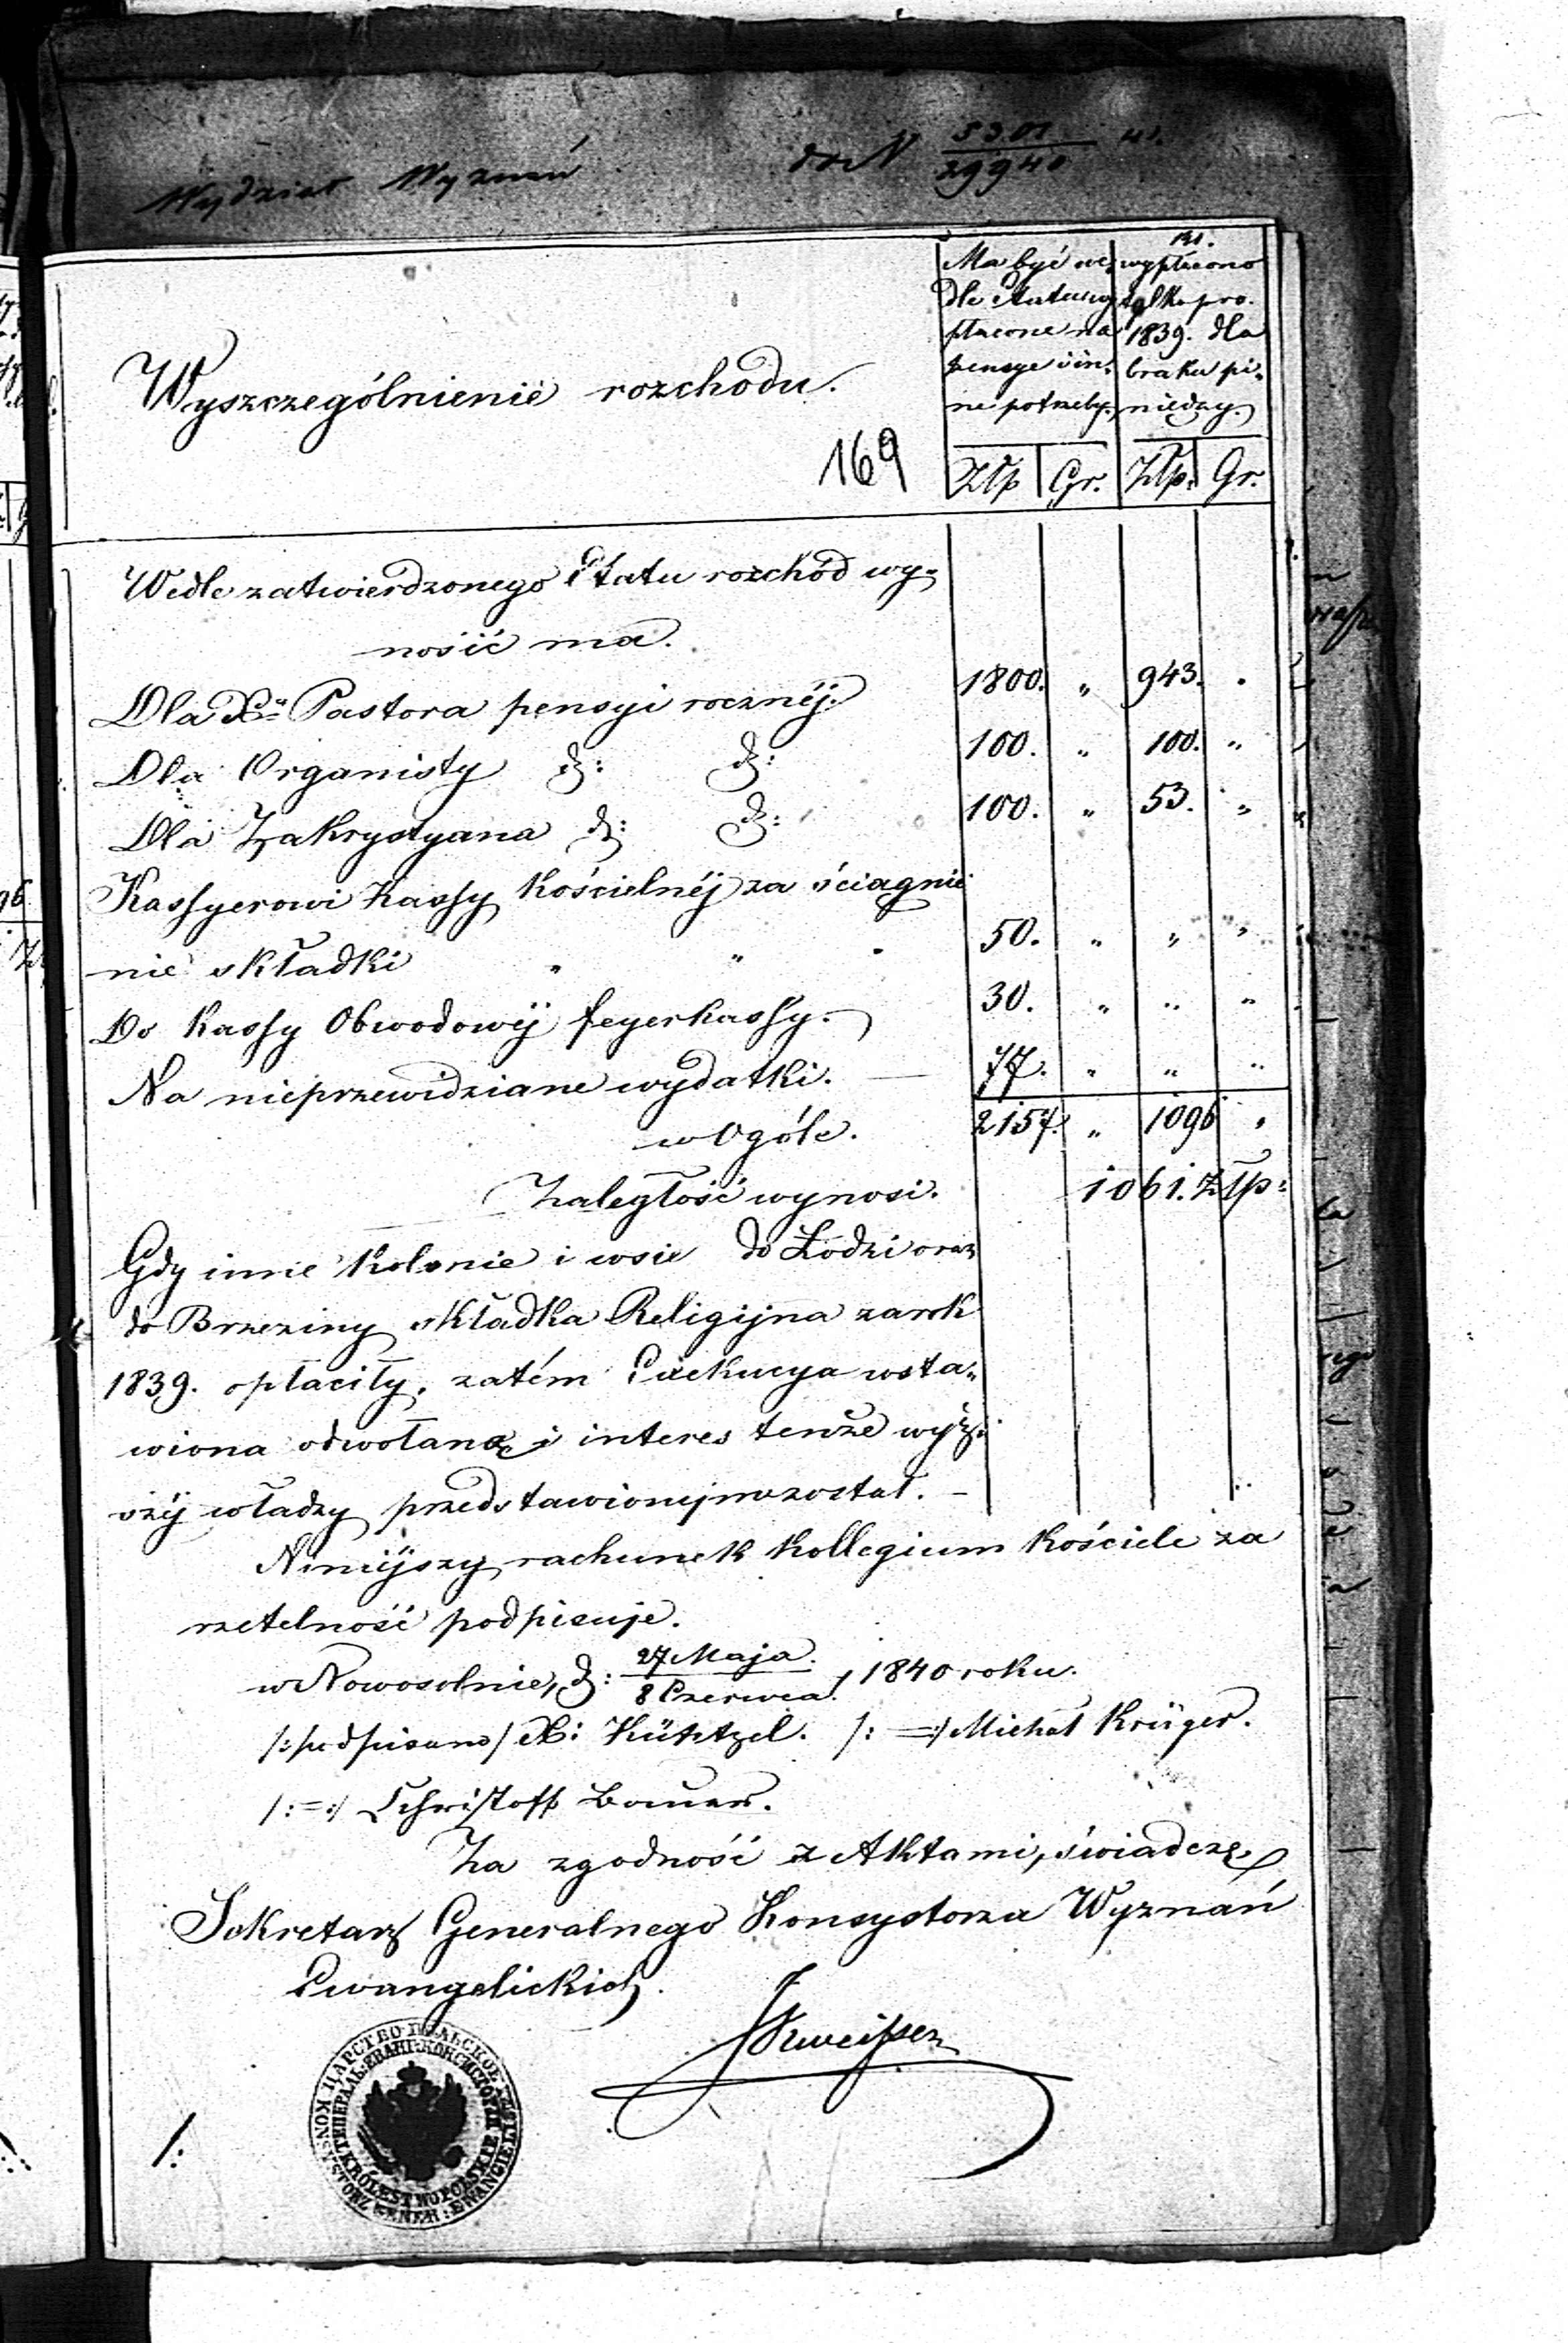 Wydział Wyznań do N 5301/29940
Wyszczególnienie rozchodu.
169
Ma być we-
dle Etatu wy-
płacone na
pensye i in-
ne potrzeby.
191.
wypłacono
tylko pro.
1839. dla
braku pi-
niędzy.
Złp Gr. Złp. Gr.
Wedle zatwierdzonego Etatu rozchód wy-
nosić ma.
Dla Xa Pastora pensyi rocznéj. 1800. „ 943. „
Dla Organisty d: d: 100. „ 100. „
Dla Zakrystyana d: d: 100. „ 53. „
Kassyerowi Kassy Kościelnéj za ściągnie
nie składki „ „ 50. „ „ „
Do Kassy Obwodowéj feyerkassy. 30. „ „ „
Na nieprzewidziane wydatki. — 77. „ „ „
w Ogóle. 2157. „ 1096 „
Zaległość wynosi. 1061. Złp:
Gdy inne Kolonie i wsie do Łodzi oraz
do Brzeziny składka Religijna za rok
1839. opłaciły, zatém Exekucya wsta-
wiona odwołaną i interes tenże wyż-
széj władzy przedstawionym został. —
Niniéjszy rachunek Kollegium Kościele za
rzetelność podpisuje.
w Nowosolnie, d: 27 Maja/8 Czerwca, 1840 roku.
/:podpisano/ X: Küntzel. /: =:/ Michał Krüger.
/:=:/ Christoff Bauer.
Za zgodność z Aktami, świadczę
Sekretarz Generalnego Konsystorza Wyznań
Ewangelickich.
/: